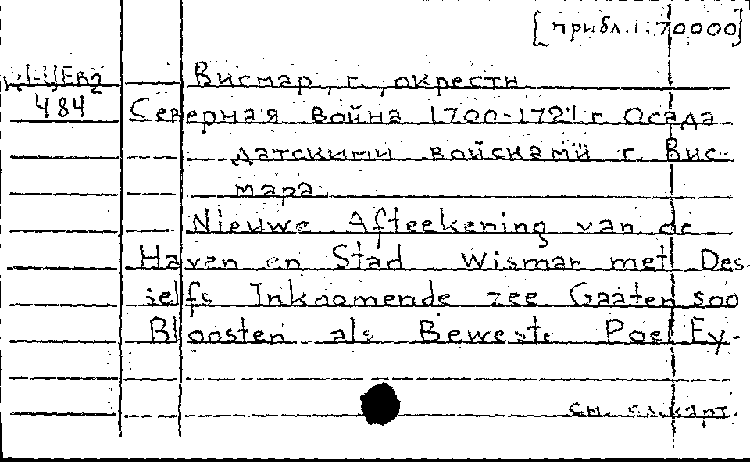 [прибл. 1:70000]
Висмар, г., окрестн.
484
Северная война 1700-1721 г. Осада
датскими войсками г. Вис-
мара.
Nieuwe Afteekening van de
Haven en Stad Wismar met Des
selfs Inknomende zee Gaaten soo
Bloosten als Beweste Poel Ey-
см. сл. карт.